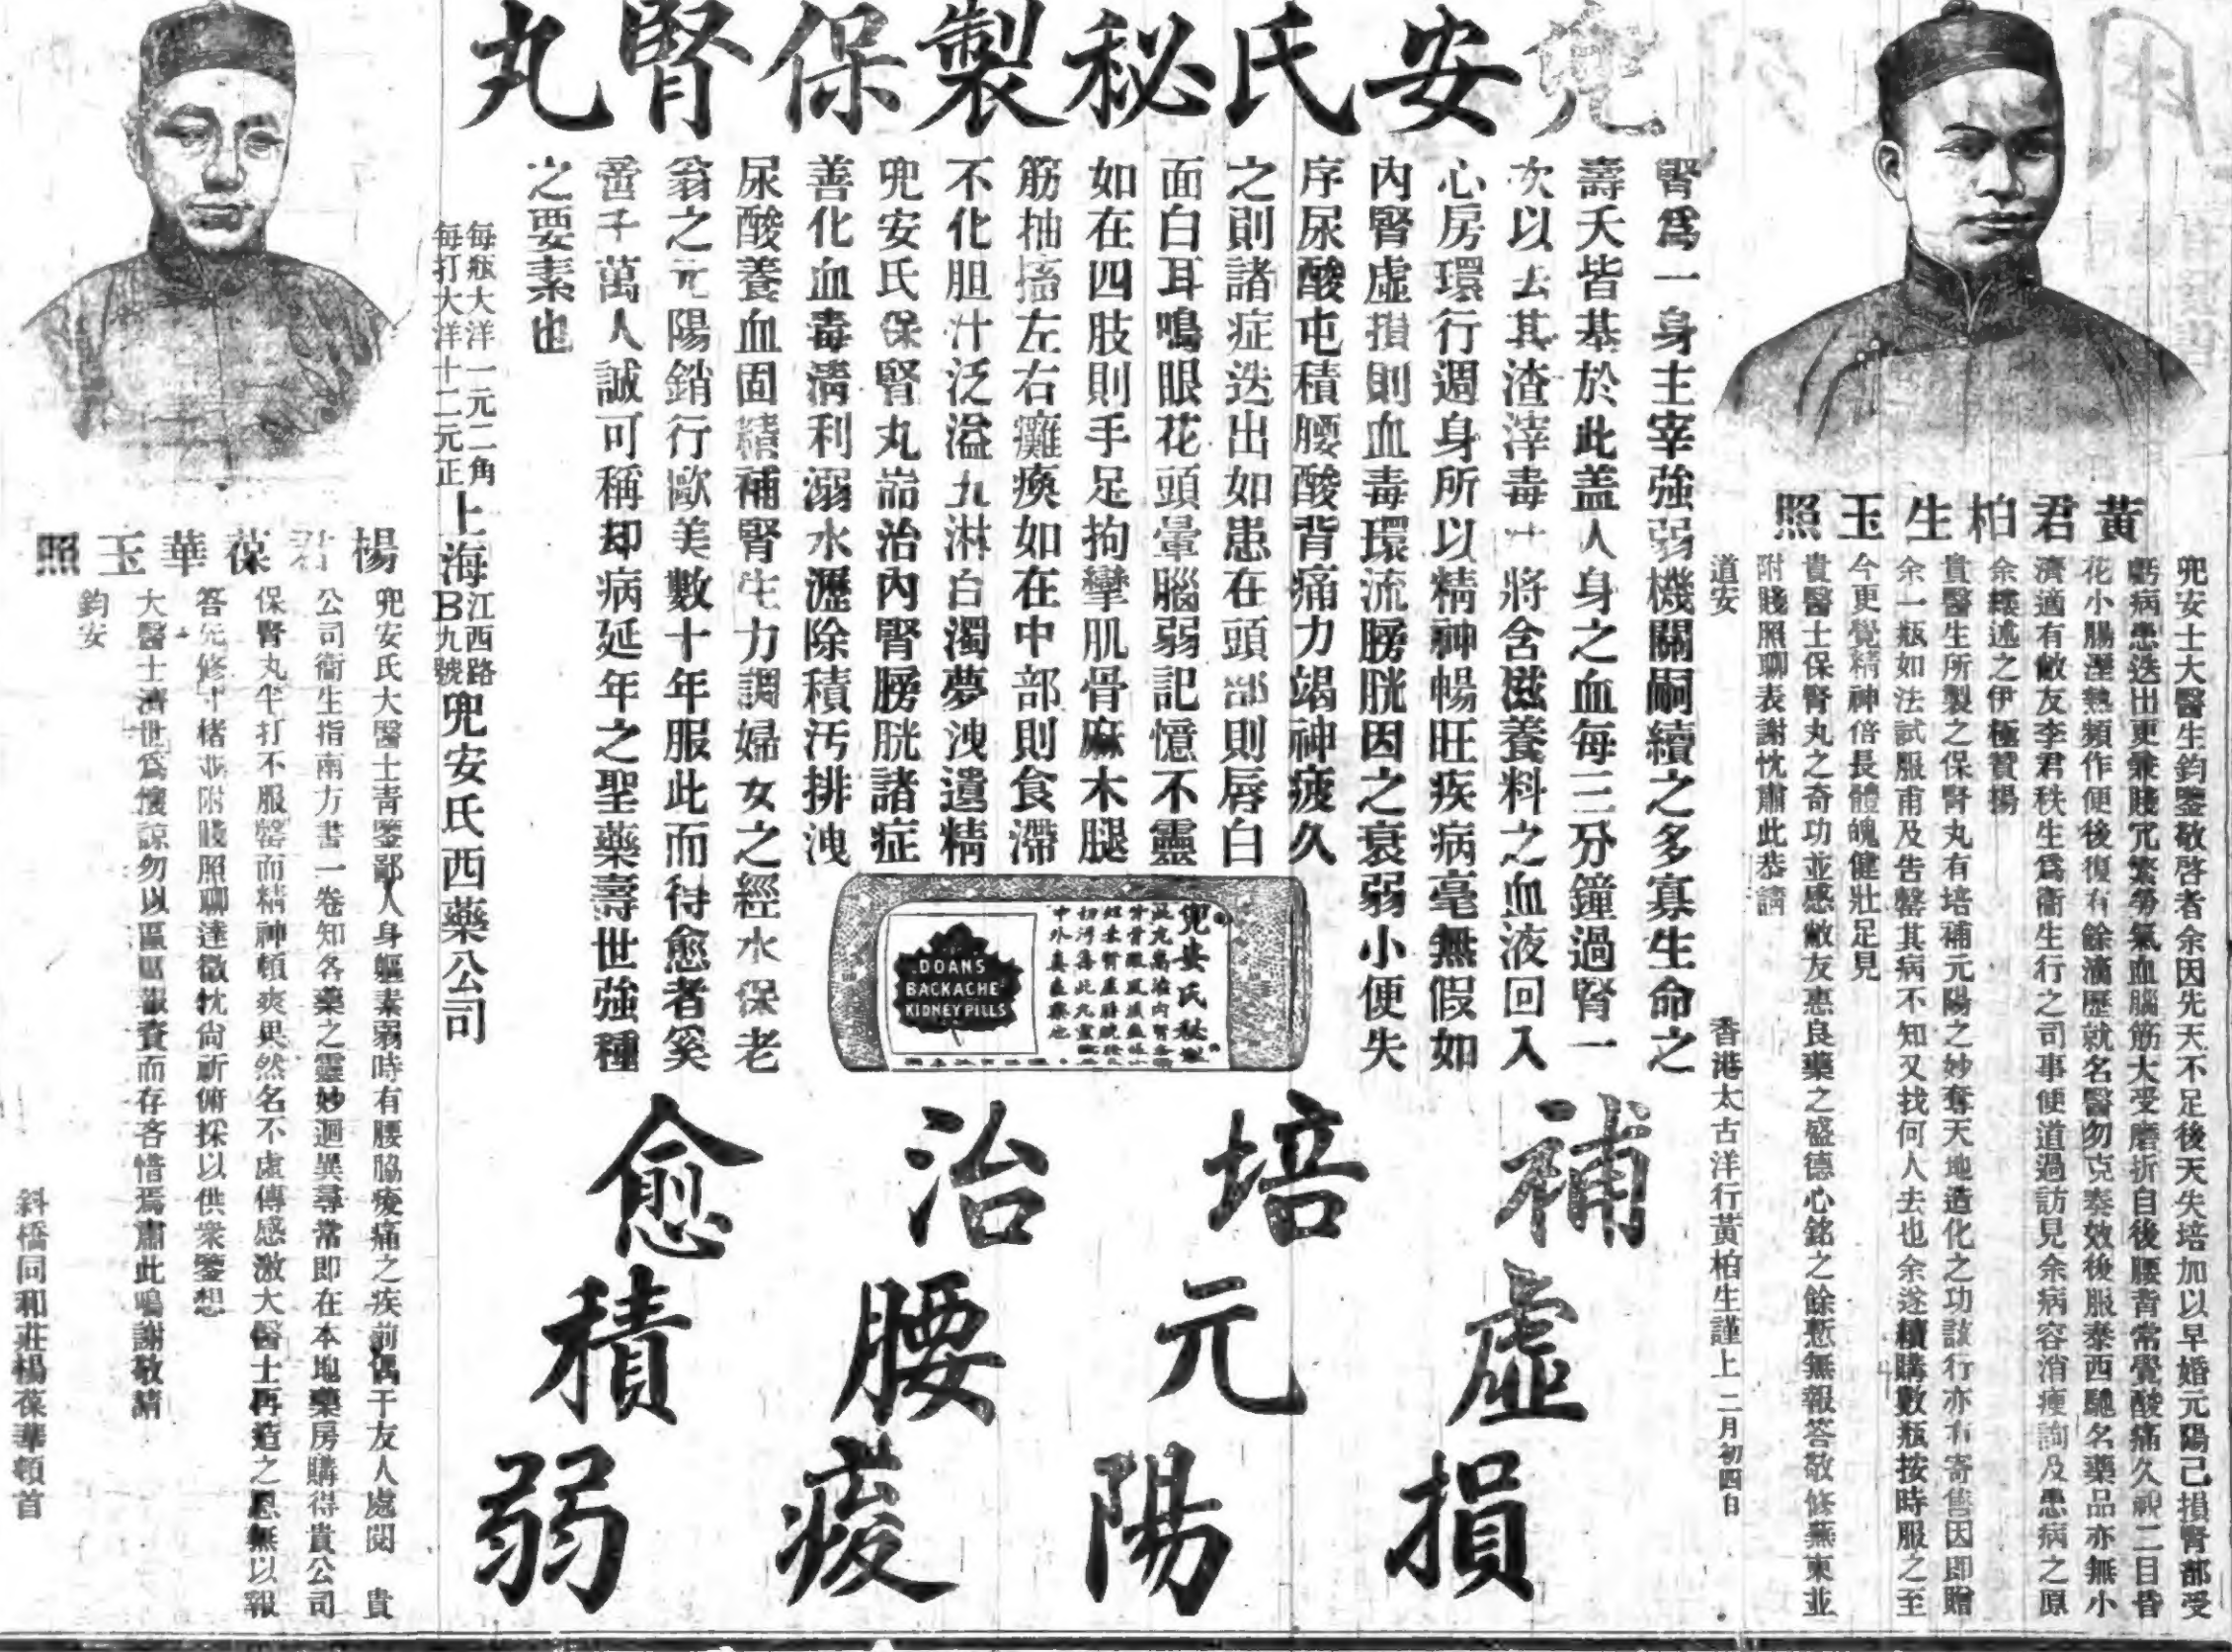 兜安氏秘製保腎丸
黃君柏生玉照
兜安士大醫生鈞鑒敬啓者余因先天不足後天失培加以早婚元陽已損腎部受
虧病患迭出更兼賤冗繁勞氣血腦筋大受磨折自後腰背常覺酸痛久視二目昏
花小腸溼熱頻作便後復有餘滴歷就名醫勿克奏效後服泰西馳名藥品亦無小
濟適有敝友李君秩生爲衞生行之司事便道過訪見余病容消瘦詢及患病之原
余縷述之伊極贊揚
貴醫生所製之保腎丸有培補元陽之妙奪天地造化之功該行亦有寄售因即贈
余一瓶如法試服甫及告罄其病不知又找何人去也余遂續購數瓶按時服之至
今更覺精神倍長體魄健壯足見
貴醫士保腎丸之奇功並感敝友惠良藥之盛德心銘之餘慙無報答敬修蕪柬並
附賤照聊表謝忱肅此恭請
道安
香港太古洋行黃柏生謹上 二月初四日
腎爲一身主宰強弱機關嗣續之多寡生命之
壽夭皆基於此盖人身之血每三分鐘過腎一
次以去其渣滓毒汁將含滋養料之血液回入
心房環行週身所以精神暢旺疾病毫無假如
內腎虛損則血毒環流膀胱因之衰弱小便失
序尿酸屯積腰酸背痛力竭神疲久
之則諸症迭出如患在頭部則唇白
面白耳鳴眼花頭暈腦弱記憶不靈
如在四肢則手足拘攣肌骨麻木腿
筋抽搐左右癱瘓如在中部則食滯
不化胆汁泛溢五淋白濁夢洩遺精
兜安氏保腎丸耑治內腎膀胱諸症
善化血毒淸利溺水瀝除積汚排洩
尿酸養血固精補腎生力調婦女之經水保老
翁之元陽銷行歐美數十年服此而待愈者奚
啻千萬人誠可稱却病延年之聖藥壽世強種
之要素也
DOAN'S
BACKACHE
KIDNEY PILLS
兜安氏秘製
補虛損
培元陽
治腰痠
愈積弱
每瓶大洋一元二角
每打大洋十二元正
上海江西路B九號兜安氏西藥公司
楊君葆華玉照
兜安氏大醫士靑鑒鄙人身軀素弱時有腰脇痠痛之疾前偶于友人處閱 貴
公司衞生指南方書一卷知各藥之靈妙迥異尋常即在本地藥房購得貴公司
保腎丸半打不服罄而精神頓爽果然名不虛傳感激大醫士再造之恩無以報
答先修寸楮並附賤照聊達微忱尙祈俯採以供衆鑒想
大醫士濟世爲懷諒勿以區區報費而存吝惜焉肅此鳴謝敬請
鈞安
斜橋同和莊楊葆華頓首